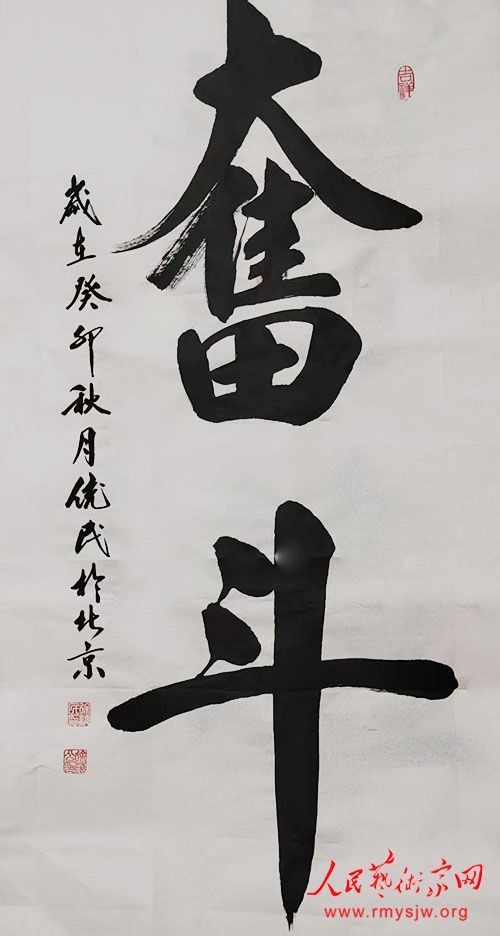 奮斗
吉祥
歲在癸卯秋月俊民於北京
人民藝術家网
www.rmysjw.org